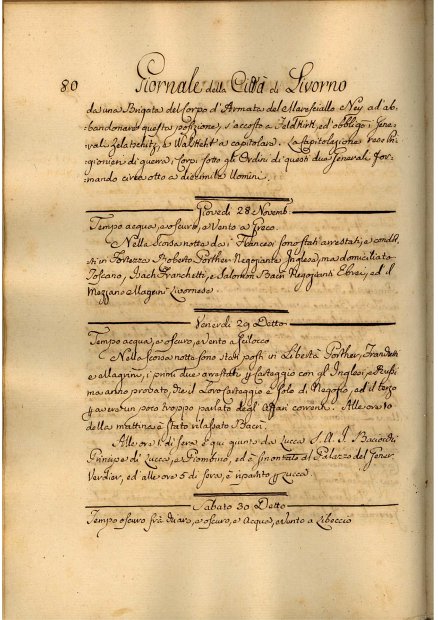 80 Giornale della Città di Livorno
da una Brigata del Corpo d'Armata del Maresciallo Ney ad ab,
,bandonare questa posizione, s'accostò a Feldkirk, ed obbligò i Gene,
rali Zelaschitz, e Walfskehl a capitolare. La Capitolazione rese Pri,
gionieri di guerra i Corpi sotto gli Ordini di questi due Generali for,
mando circa otto a diecimila Uomini.
Giovedì 28 Novemb.
Tempo acqua, e oscuro, e Vento a Greco
Nella Scorsa notte da i Francesi sono stati arrestati, e condot,
ti in Fortezza Roberto Porther Negoziante Inglese, ma domiciliato
Toscano, Isach Franchetti, e Salomon Bacrì Negozianti Ebrei, ed il
Mezzano Allegrini Livornese.
Venerdì 29 Detto
Tempo acqua, e oscuro, e Vento a Scilocco
Nella scorsa notte sono stati posti in Libertà Porther, Franchetti
e Allegrini, i primi due arrestati per Carteggio con gl'Inglesi, e
ma anno probato, che il Loro Carteggio è solo di Negozio, ed il terzo
per avere un poco troppo parlato degl'Affari correnti. Alle ore 10
della mattina è stato rilassato Bacrì.
Alle ore 1 di sera è qui giunto da Lucca S. A. I. Baciocchi
Principe di Lucca, e Piombino, ed è smontato al Palazzo del Gener.
Verdier, ed alle ore 5 di sera, è ripartito per Lucca
Sabato 30 Detto
Tempo oscuro frà chiaro, e oscuro, e Acqua, e Vento a Libeccio